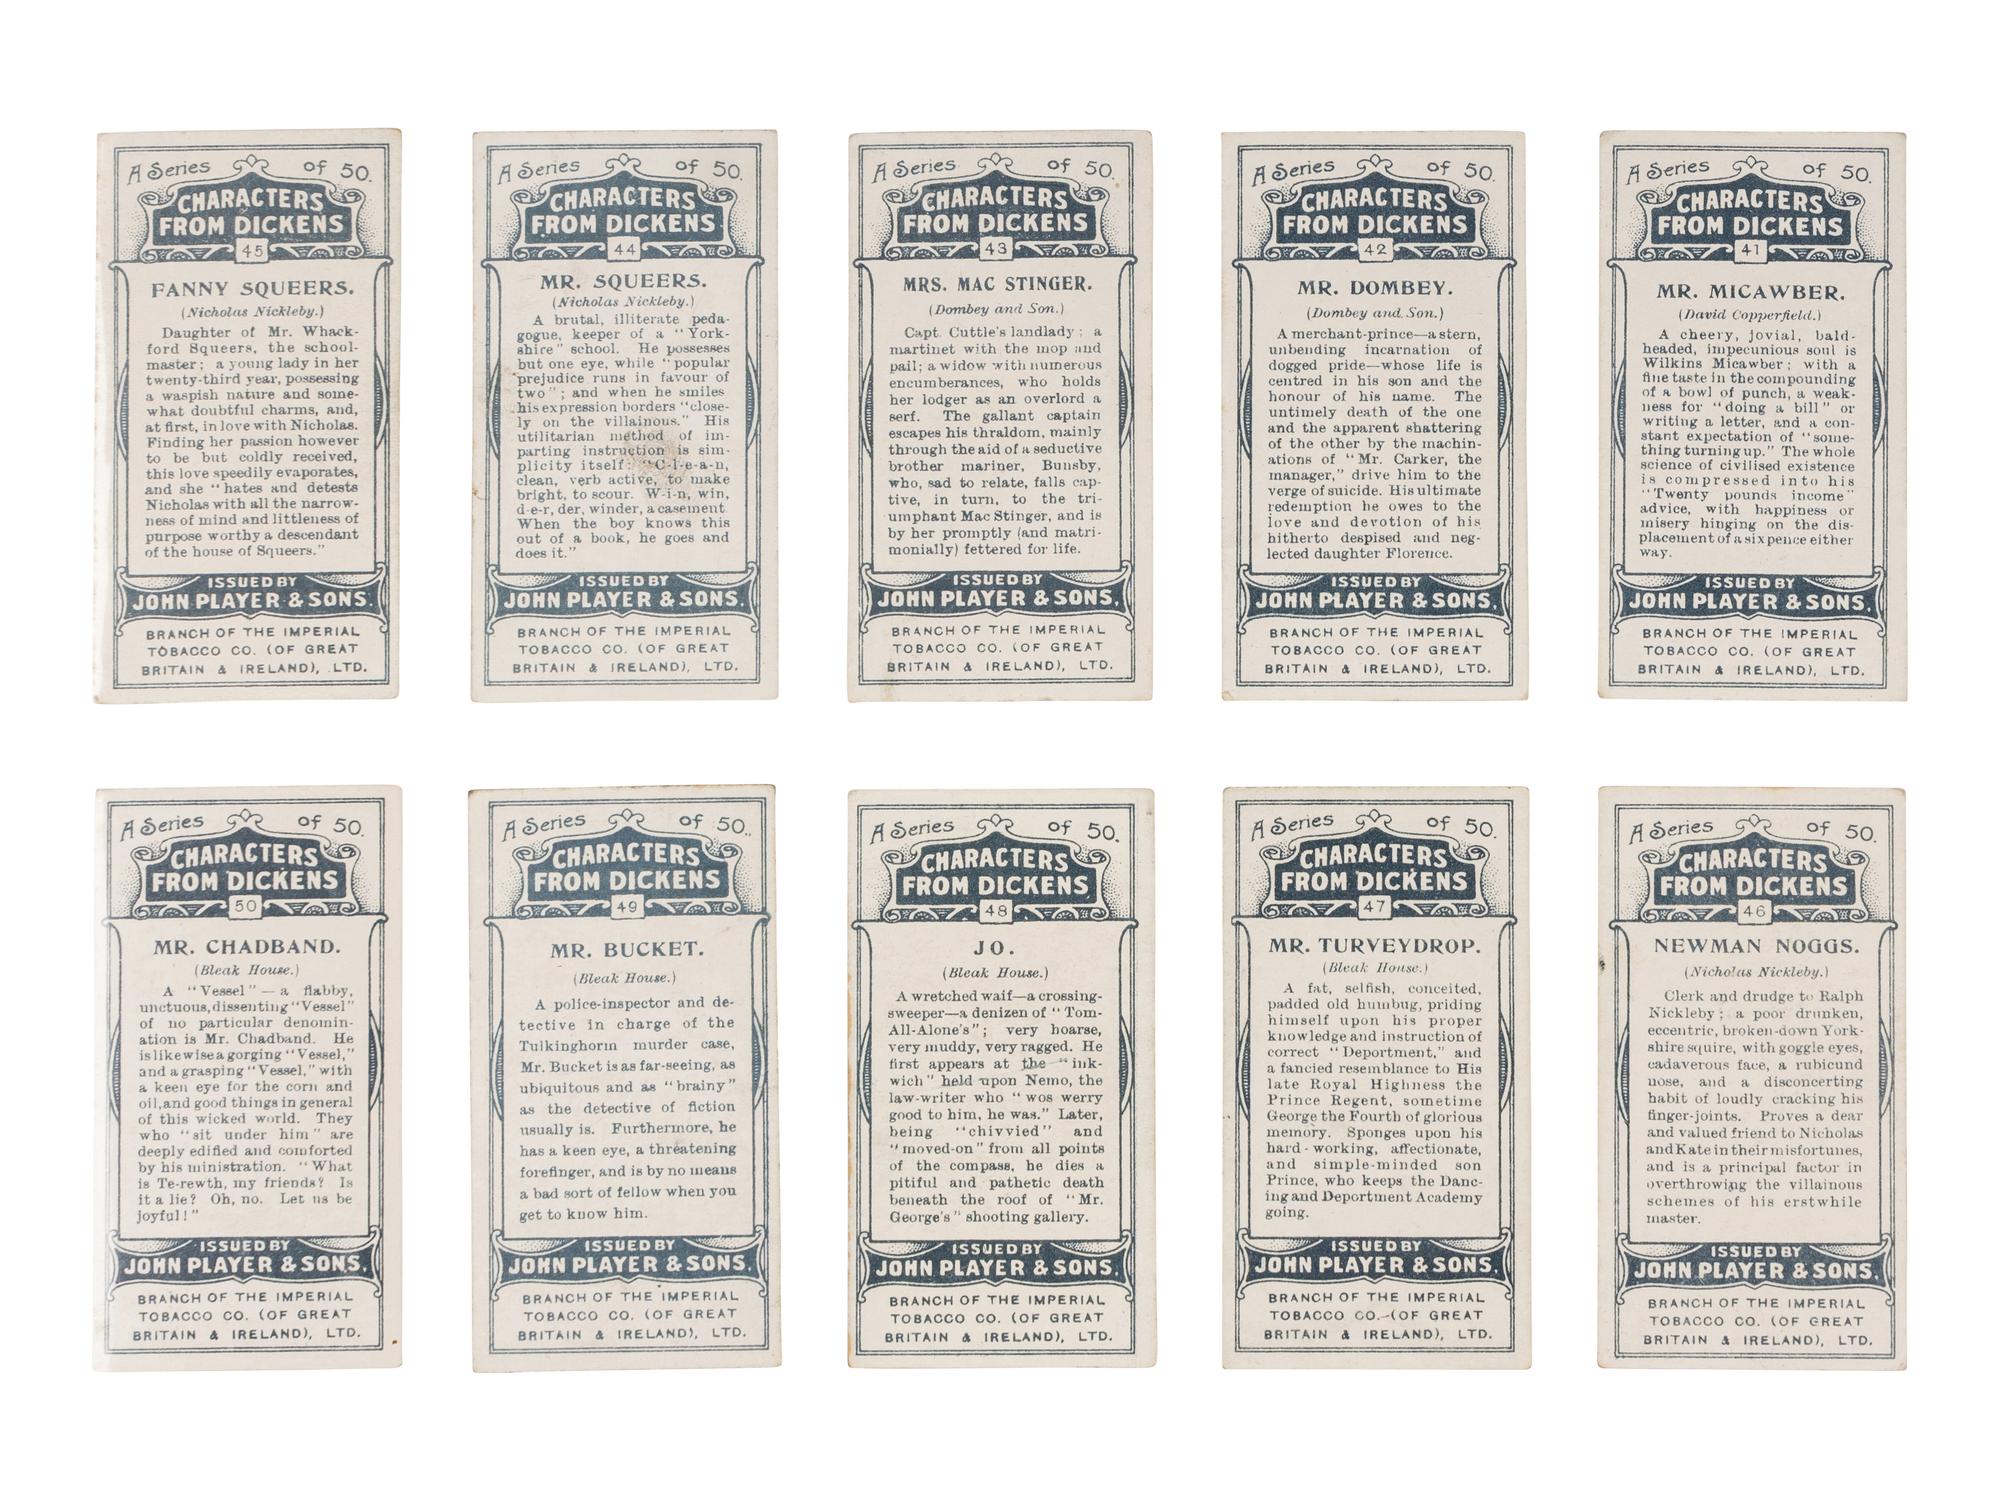 A Series of 50.
CHARACTERS
FROM DICKENS
45
FANNY SQUEERS.
(Nicholas Nickleby.)
Daughter of Mr. Whack-
ford Squeers, the school-
master; a young lady in her
twenty-third year, possessing
a waspish nature and some-
what doubtful charms, and,
at first, in love with Nicholas.
Finding her passion however
to be but coldly received,
this love speedily evaporates,
and she "hates and detests
Nicholas with all the narrow-
ness of mind and littleness of
purpose worthy a descendant
of the house of Squeers."
ISSUED BY
JOHN PLAYER & SONS.
BRANCH OF THE IMPERIAL
TOBACCO CO. (OF GREAT
BRITAIN & IRELAND), LTD.
A Series of 50.
CHARACTERS
FROM DICKENS
44
MR. SQUEERS.
(Nicholas Nickleby.)
A brutal, illiterate peda-
gogue, keeper of a "York-
shire" school. He possesses
but one eye, while "popular
prejudice runs in favour of
two"; and when he smiles
his expression borders "close-
ly on the villainous." His
utilitarian method of im-
parting instruction is sim-
plicity itself: "C-l-e-a-n,
clean, verb active, to make
bright, to scour. W-i-n, win,
d-e-r, der, winder, a casement
When the boy knows this
out of a book, he goes and
does it."
ISSUED BY
JOHN PLAYER & SONS.
BRANCH OF THE IMPERIAL
TOBACCO CO. (OF GREAT
BRITAIN & IRELAND), LTD.
A Series of 50.
CHARACTERS
FROM DICKENS
43
MRS. MAC STINGER.
(Dombey and Son.)
Capt. Cuttle's landlady; a
martinet with the mop and
pail; a widow with numerous
encumberances, who holds
her lodger as an overlord a
serf. The gallant captain
escapes his thraldom, mainly
through the aid of a seductive
brother mariner, Bunsby,
who, sad to relate, falls cap-
tive, in turn, to the tri-
umphant Mac Stinger, and is
by her promptly (and matri-
monially) fettered for life.
ISSUED BY
JOHN PLAYER & SONS.
BRANCH OF THE IMPERIAL
TOBACCO CO. (OF GREAT
BRITAIN & IRELAND), LTD.
A Series of 50.
CHARACTERS
FROM DICKENS
42
MR. DOMBEY.
(Dombey and Son.)
A merchant-prince—a stern,
unbending incarnation of
dogged pride—whose life is
centred in his son and the
honour of his name. The
untimely death of the one
and the apparent shattering
of the other by the machin-
ations of "Mr. Carker, the
manager," drive him to the
verge of suicide. His ultimate
redemption he owes to the
love and devotion of his
hitherto despised and neg-
lected daughter Florence.
ISSUED BY
JOHN PLAYER & SONS.
BRANCH OF THE IMPERIAL
TOBACCO CO. (OF GREAT
BRITAIN & IRELAND), LTD.
A Series of 50.
CHARACTERS
FROM DICKENS
41
MR. MICAWBER.
(David Copperfield.)
A cheery, jovial, bald-
headed, impecunious soul is
Wilkins Micawber; with a
fine taste in the compounding
of a bowl of punch, a weak-
ness for "doing a bill" or
writing a letter, and a con-
stant expectation of "some-
thing turning up." The whole
science of civilised existence
is compressed into his
"Twenty pounds income"
advice, with happiness or
misery hinging on the dis-
placement of a sixpence either
way.
ISSUED BY
JOHN PLAYER & SONS.
BRANCH OF THE IMPERIAL
TOBACCO CO. (OF GREAT
BRITAIN & IRELAND), LTD.
A Series of 50.
CHARACTERS
FROM DICKENS
50
MR. CHADBAND.
(Bleak House.)
A "Vessel"—a flabby,
unctuous, dissenting "Vessel"
of no particular denomin-
ation is Mr. Chadband. He
is likewise a gorging "Vessel,"
and a grasping "Vessel," with
a keen eye for the corn and
oil, and good things in general
of this wicked world. They
who "sit under him" are
deeply edified and comforted
by his ministration. "What
is Te-rewth, my friends? Is
it a lie? Oh, no. Let us be
joyful!"
ISSUED BY
JOHN PLAYER & SONS.
BRANCH OF THE IMPERIAL
TOBACCO CO. (OF GREAT
BRITAIN & IRELAND), LTD.
A Series of 50.
CHARACTERS
FROM DICKENS
49
MR. BUCKET.
(Bleak House.)
A police-inspector and de-
tective in charge of the
Tulkinghorm murder case,
Mr. Bucket is as far-seeing, as
ubiquitous and as "brainy"
as the detective of fiction
usually is. Furthermore, he
has a keen eye, a threatening
forefinger, and is by no means
a bad sort of fellow when you
get to know him.
ISSUED BY
JOHN PLAYER & SONS.
BRANCH OF THE IMPERIAL
TOBACCO CO. (OF GREAT
BRITAIN & IRELAND), LTD.
A Series of 50.
CHARACTERS
FROM DICKENS
48
JO.
(Bleak House.)
A wretched waif—a crossing-
sweeper—a denizen of "Tom-
All-Alone's"; very hoarse,
very muddy, very ragged. He
first appears at the "ink-
wich" held upon Nemo, the
law-writer who "wos werry
good to him, he was." Later,
being "chivvied" and
"moved-on" from all points
of the compass, he dies a
pitiful and pathetic death
beneath the roof of "Mr.
George's" shooting gallery.
ISSUED BY
JOHN PLAYER & SONS.
BRANCH OF THE IMPERIAL
TOBACCO CO. (OF GREAT
BRITAIN & IRELAND), LTD.
A Series of 50.
CHARACTERS
FROM DICKENS
47
MR. TURVEYDROP.
(Bleak House.)
A fat, selfish, conceited,
padded old humbug, priding
himself upon his proper
knowledge and instruction of
correct "Deportment," and
a fancied resemblance to His
late Royal Highness the
Prince Regent, sometime
George the Fourth of glorious
memory. Sponges upon his
hard-working, affectionate,
and simple-minded son
Prince, who keeps the Danc-
ing and Deportment Academy
going.
ISSUED BY
JOHN PLAYER & SONS.
BRANCH OF THE IMPERIAL
TOBACCO CO. (OF GREAT
BRITAIN & IRELAND), LTD.
A Series of 50.
CHARACTERS
FROM DICKENS
46
NEWMAN NOGGS.
(Nicholas Nickleby.)
Clerk and drudge to Ralph
Nickleby; a poor drunken,
eccentric, broken-down York-
shire squire, with goggle eyes,
cadaverous face, a rubicund
nose, and a disconcerting
habit of loudly cracking his
finger-joints. Proves a dear
and valued friend to Nicholas
and Kate in their misfortunes,
and is a principal factor in
overthrowing the villainous
schemes of his erstwhile
master.
ISSUED BY
JOHN PLAYER & SONS.
BRANCH OF THE IMPERIAL
TOBACCO CO. (OF GREAT
BRITAIN & IRELAND), LTD.